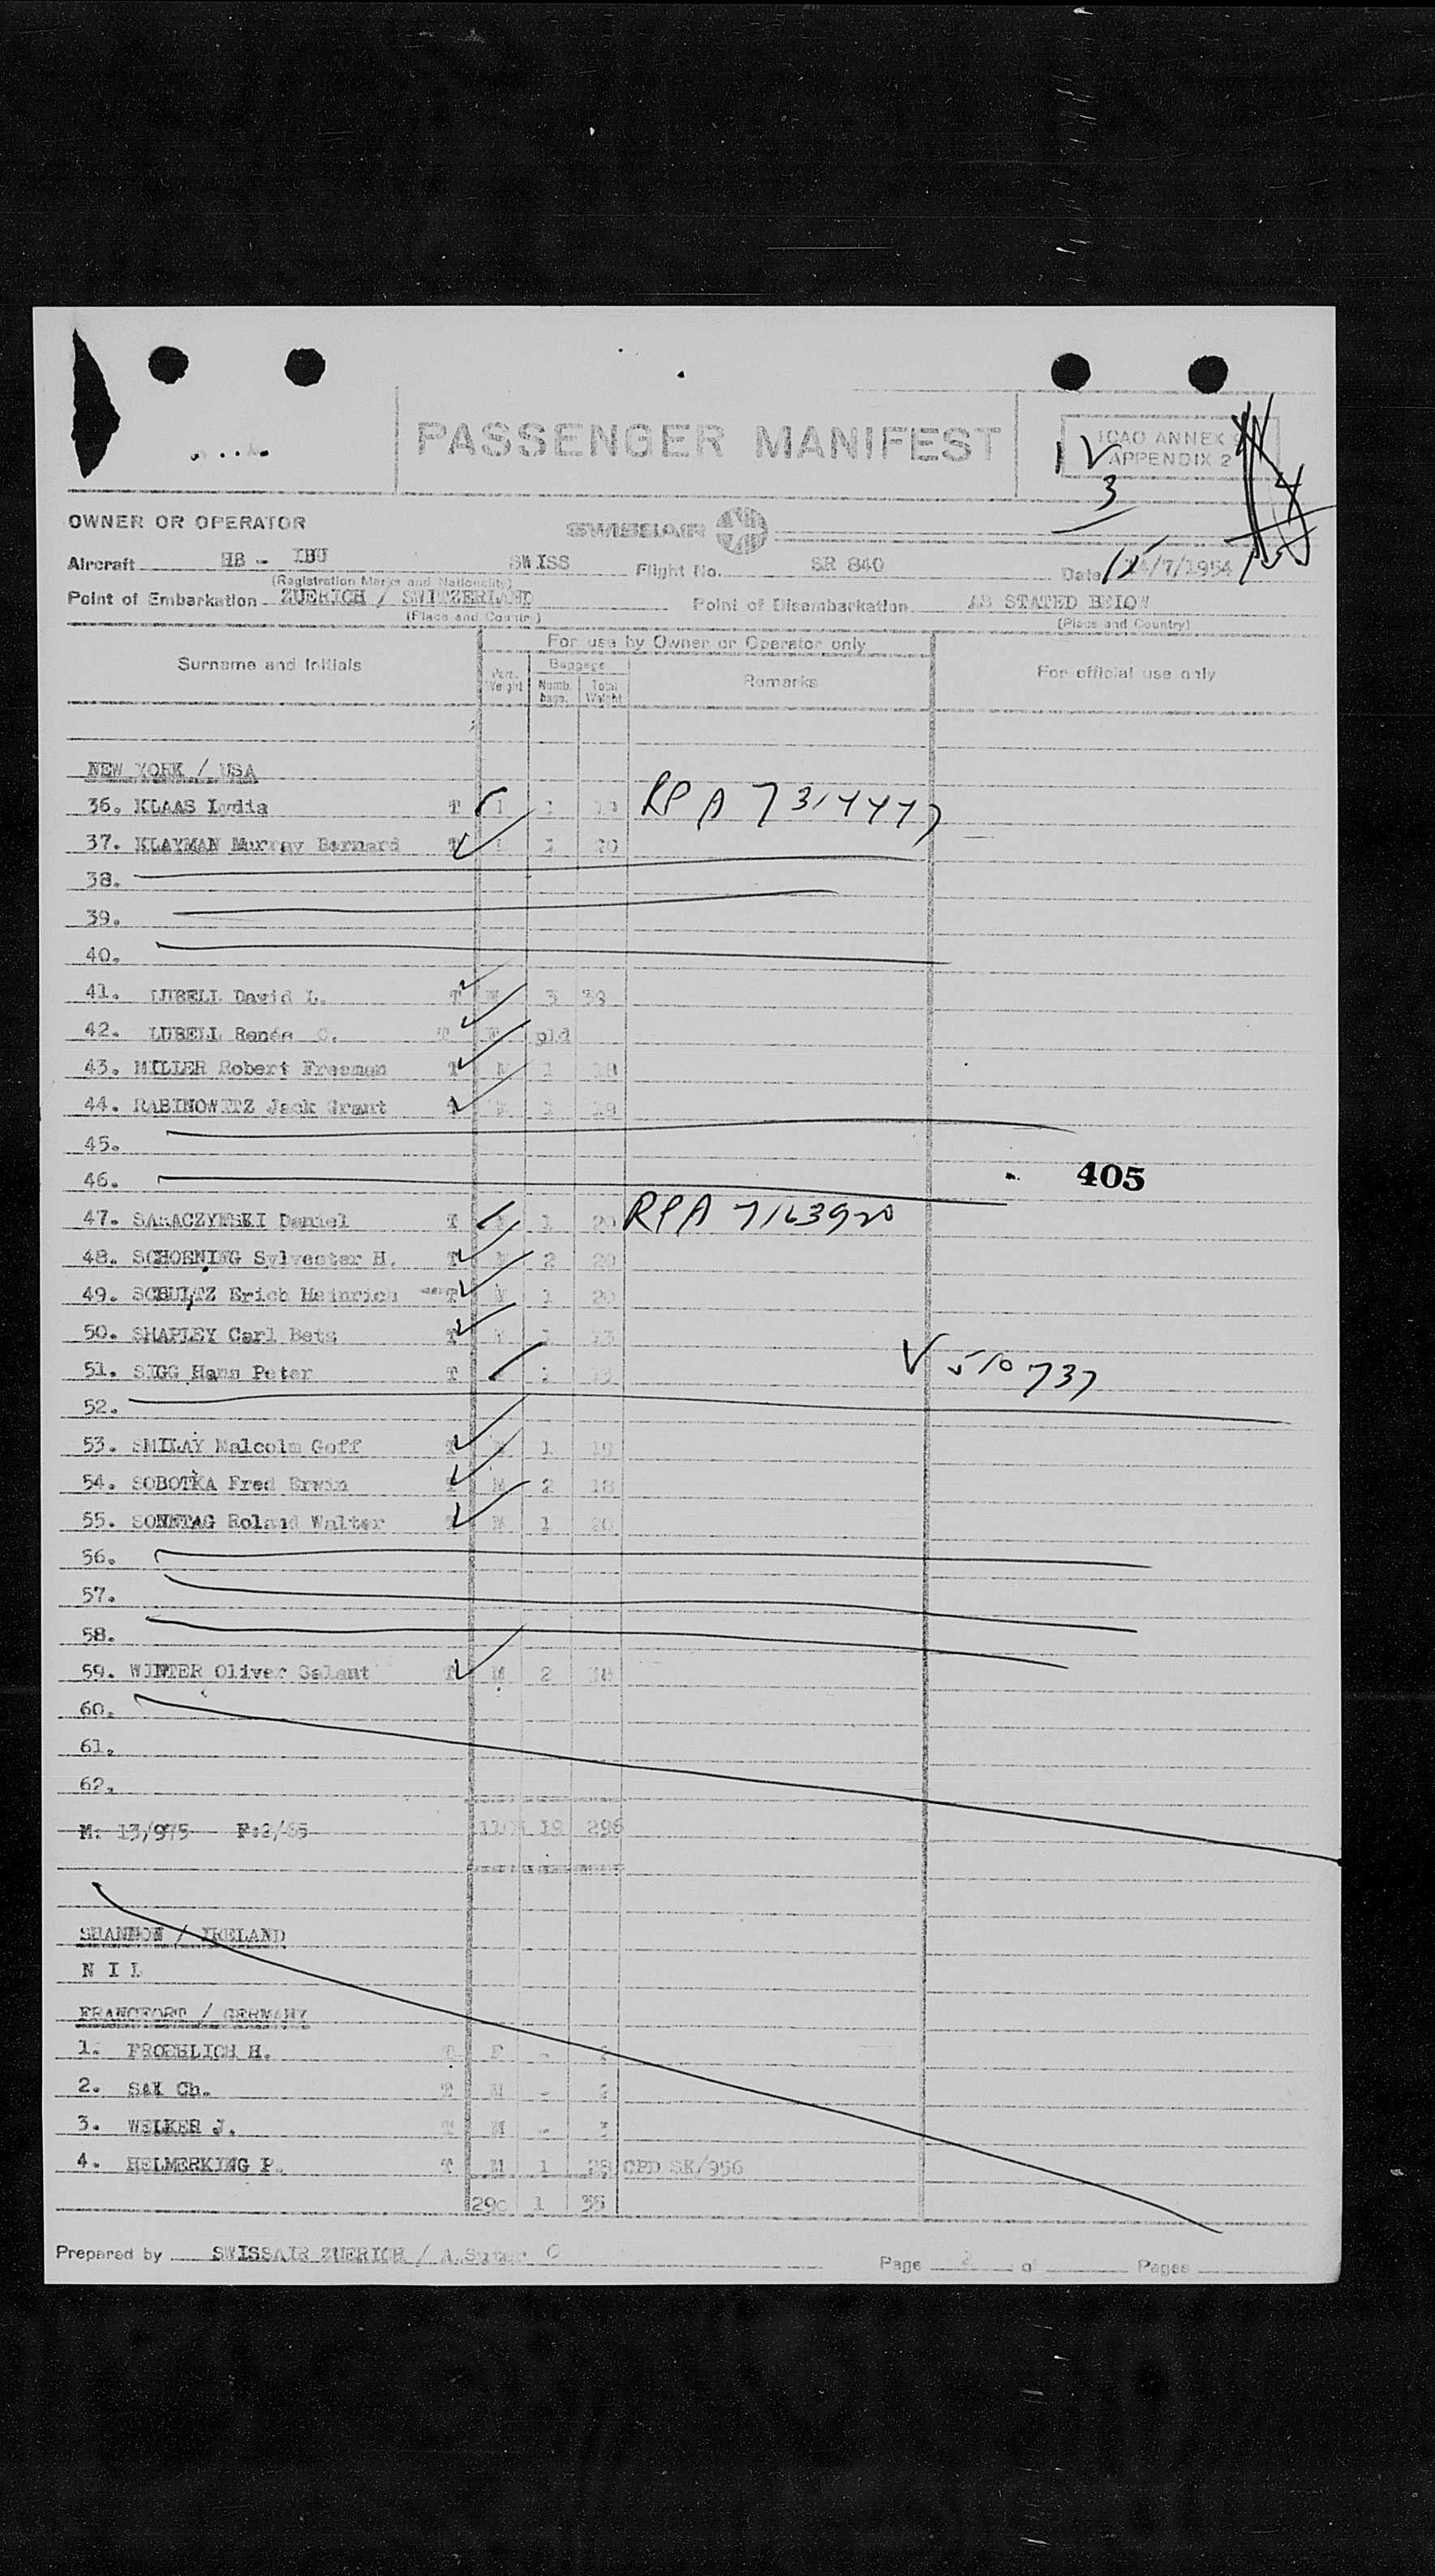 PASSENGER MANIFEST
ICAO ANNEX 9
APPENDIX 2
3
OWNER OR OPERATOR SWISSAIR
Aircraft HB - IBU SWISS Flight No. SR 840 Date /7/1954
(Registration Marks and Nationality)
Point of Embarkation ZUERICH / SWITZERLAND Point of Disembarkation AS STATED BELOW
(Place and Country) (Place and Country)
For use by Owner or Operator only
Surname and Initials Pass. Weight Baggage Numb. bags. Total Weight Remarks For official use only
NEW YORK / USA
36. KLAAS Lydia T 1 RPA 7317447
37. KLAYMAN Murray Bernard T 1 20
38.
39.
40.
41. LUBELL David L. T M 3 39
42. LUBELL Renée C. T F pld
43. MILLER Robert Freeman T M 1 18
44. RABINOWITZ Jack Grant T M 1 18
45.
46.
405
47. SARACZYNSKI Daniel T 1 20 RPA 7163920
48. SCHOENING Sylvester H. T M 2 20
49. SCHULTZ Erich Heinrich T M 1 20
50. SHAPLEY Carl Betz T 1 13
51. SIGG Hans Peter T 1 13 V 510737
52.
53. SMILAY Malcolm Goff T M 1 19
54. SOBOTKA Fred Erwin T M 2 18
55. SONNTAG Roland Walter T M 1 20
56.
57.
58.
59. WINTER Oliver Salant T M 2 18
60.
61.
62.
M: 13/975 F:2/ 19 296
SHANNON / IRELAND
N I L
FRANCFORT / GERMANY
1. FROEHLICH H. T F -
2. SAX Ch. T M - 2
3. WELKER J. T M - 3
4. HELMERKING P. T M 1 28 CPD SK/956
290 1 35
Prepared by SWISSAIR ZUERICH / A.Suter Page 2 of Pages